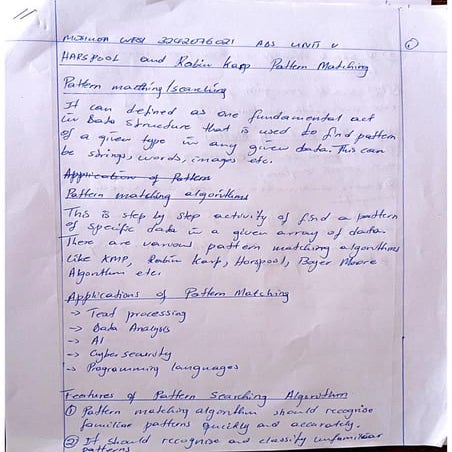 2242076021 ADS UNIT V
HARSPOOL and Rabin Karp Pattern Matching
Pattern matching/searching
It can defined as one fundamental act
in Data Structure that is used to find pattern
of a given type in any given data. This can
be strings, words, images etc.
Application of Pattern
Pattern matching algorithms
This is step by step activity of find a pattern
of specific data in a given array of data.
There are various pattern matching algorithms
like KMP, Rabin Karp, Horspool, Boyer Moore
Algorithm etc.
Applications of Pattern Matching
-> Text processing
-> Data Analysis
-> AI
-> Cyber security
-> Programming languages
Features of Pattern Searching Algorithm
① Pattern matching algorithm should recognise
familiar patterns quickly and accurately.
② It should recognise and classify unfamiliar
patterns